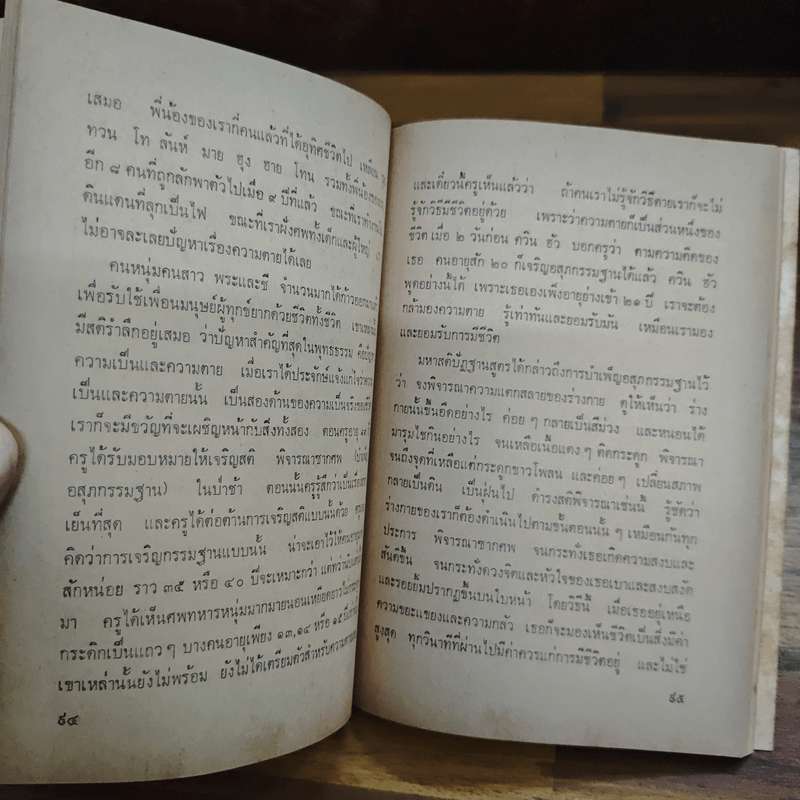 เสมอ พี่น้องของเรากี่คนแล้วที่ได้อุทิศชีวิตไป เหลียน
ทวน โท ลันห์ มาย ฮุง ฮาย โทน รวมทั้งพี่น้องของเรา
อีก ๘ คนที่ถูกลักพาตัวไปเมื่อ ๙ ปีที่แล้ว ขณะที่เราทำงานใน
ดินแดนที่ลุกเป็นไฟ ขณะที่เราฝังศพทั้งเด็กและผู้ใหญ่
ไม่อาจละเลยปัญหาเรื่องความตายได้เลย
คนหนุ่มคนสาว พระและชี จำนวนมากได้ก้าวออกมา
เพื่อรับใช้เพื่อนมนุษย์ผู้ทุกข์ยากด้วยชีวิตทั้งชีวิต
มีสติรำลึกอยู่เสมอ ว่าปัญหาสำคัญที่สุดในพุทธธรรม คือปัญหา
ความเป็นและความตาย เมื่อเราได้ประจักษ์แจ้งแก่ใจว่าความ
เป็นและความตายนั้น เป็นสองด้านของความเป็นจริงของชีวิต
เราก็จะมีขวัญที่จะเผชิญหน้ากับสิ่งทั้งสอง ตอนครูอายุ
ครูได้รับมอบหมายให้เจริญสติ พิจารณาซากศพ
อสุภกรรมฐาน) ในป่าช้า ตอนนั้นครูรู้สึกว่าเป็นเรื่อง
เย็นที่สุด และครูได้ต่อต้านการเจริญสติแบบนั้นด้วย
คิดว่าการเจริญกรรมฐานแบบนั้น น่าจะเอาไว้ให้คนอายุมาก
สักหน่อย ราว ๓๕ หรือ ๔๐ ปีจะเหมาะกว่า แต่ทว่านับแต่นั้น
มา ครูได้เห็นศพทหารหนุ่มมากมายนอนเหยียดยาวไม่
กระดิกเป็นแถว ๆ บางคนอายุเพียง ๑๓,๑๔ หรือ ๑๕ ปีเท่านั้น
เขาเหล่านั้นยังไม่พร้อม ยังไม่ได้เตรียมตัวสำหรับความตายเลย
๙๔
และเดี๋ยวนี้ครูเห็นแล้วว่า ถ้าคนเราไม่รู้จักวิธีตายเราก็จะไม่
รู้จักวิธีมีชีวิตอยู่ด้วย เพราะว่าความตายก็เป็นส่วนหนึ่งของ
ชีวิต เมื่อ ๒ วันก่อน ควิน ฮัว บอกครูว่า ตามความคิดของ
เธอ คนอายุสัก ๒๐ ก็เจริญอสุภกรรมฐานได้แล้ว ควิน ฮัว
พูดอย่างนี้ได้ เพราะเธอเองเพิ่งอายุย่างเข้า ๒๑ ปี เราจะต้อง
กล้ามองความตาย รู้เท่าทันและยอมรับมัน เหมือนเรามอง
และยอมรับการมีชีวิต
มหาสติปัฏฐานสูตรได้กล่าวถึงการบำเพ็ญอสุภกรรมฐานไว้
ว่า จงพิจารณาความแตกสลายของร่างกาย ดูให้เห็นว่า ร่าง
กายนั้นขึ้นอืดอย่างไร ค่อย ๆ กลายเป็นสีม่วง และหนอนได้
มารุมไชกินอย่างไร จนเหลือเนื้อแดง ๆ ติดกระดูก พิจารณา
จนถึงจุดที่เหลือแต่กระดูกขาวโพลน และค่อย ๆ เปลี่ยนสภาพ
กลายเป็นดิน เป็นฝุ่นไป ดำรงสติพิจารณาเช่นนี้ รู้ชัดว่า
ร่างกายของเราก็ต้องดำเนินไปตามขั้นตอนนั้น ๆ เหมือนกันทุก
ประการ พิจารณาซากศพ จนกระทั่งเธอเกิดความสงบและ
สันติขึ้น จนกระทั่งดวงจิตและหัวใจของเธอเบาและสงบสงัด
และรอยยิ้มปรากฏขึ้นบนใบหน้า โดยวิธีนี้ เมื่อเธออยู่เหนือ
ความขยะแขยงและความกลัว เธอก็จะมองเห็นชีวิตเป็นสิ่งมีค่า
สูงสุด ทุกวินาทีที่ผ่านไปมีค่าควรแก่การมีชีวิตอยู่ และไม่ใช่
๙๕